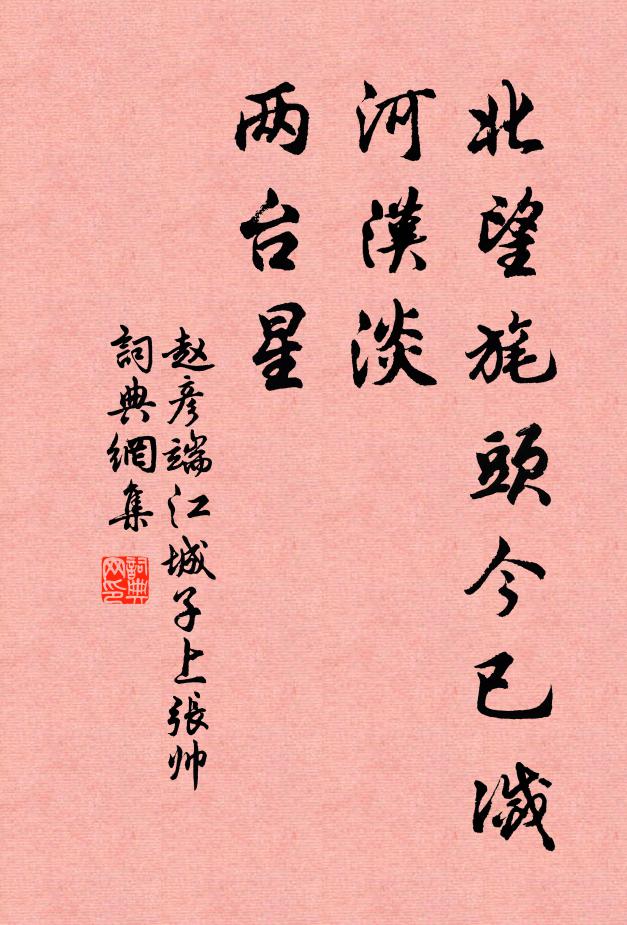 北望旄頭今已滅
河漢淡
两台星
赵彦端江城子上張帅
詞典網集
詞典网印